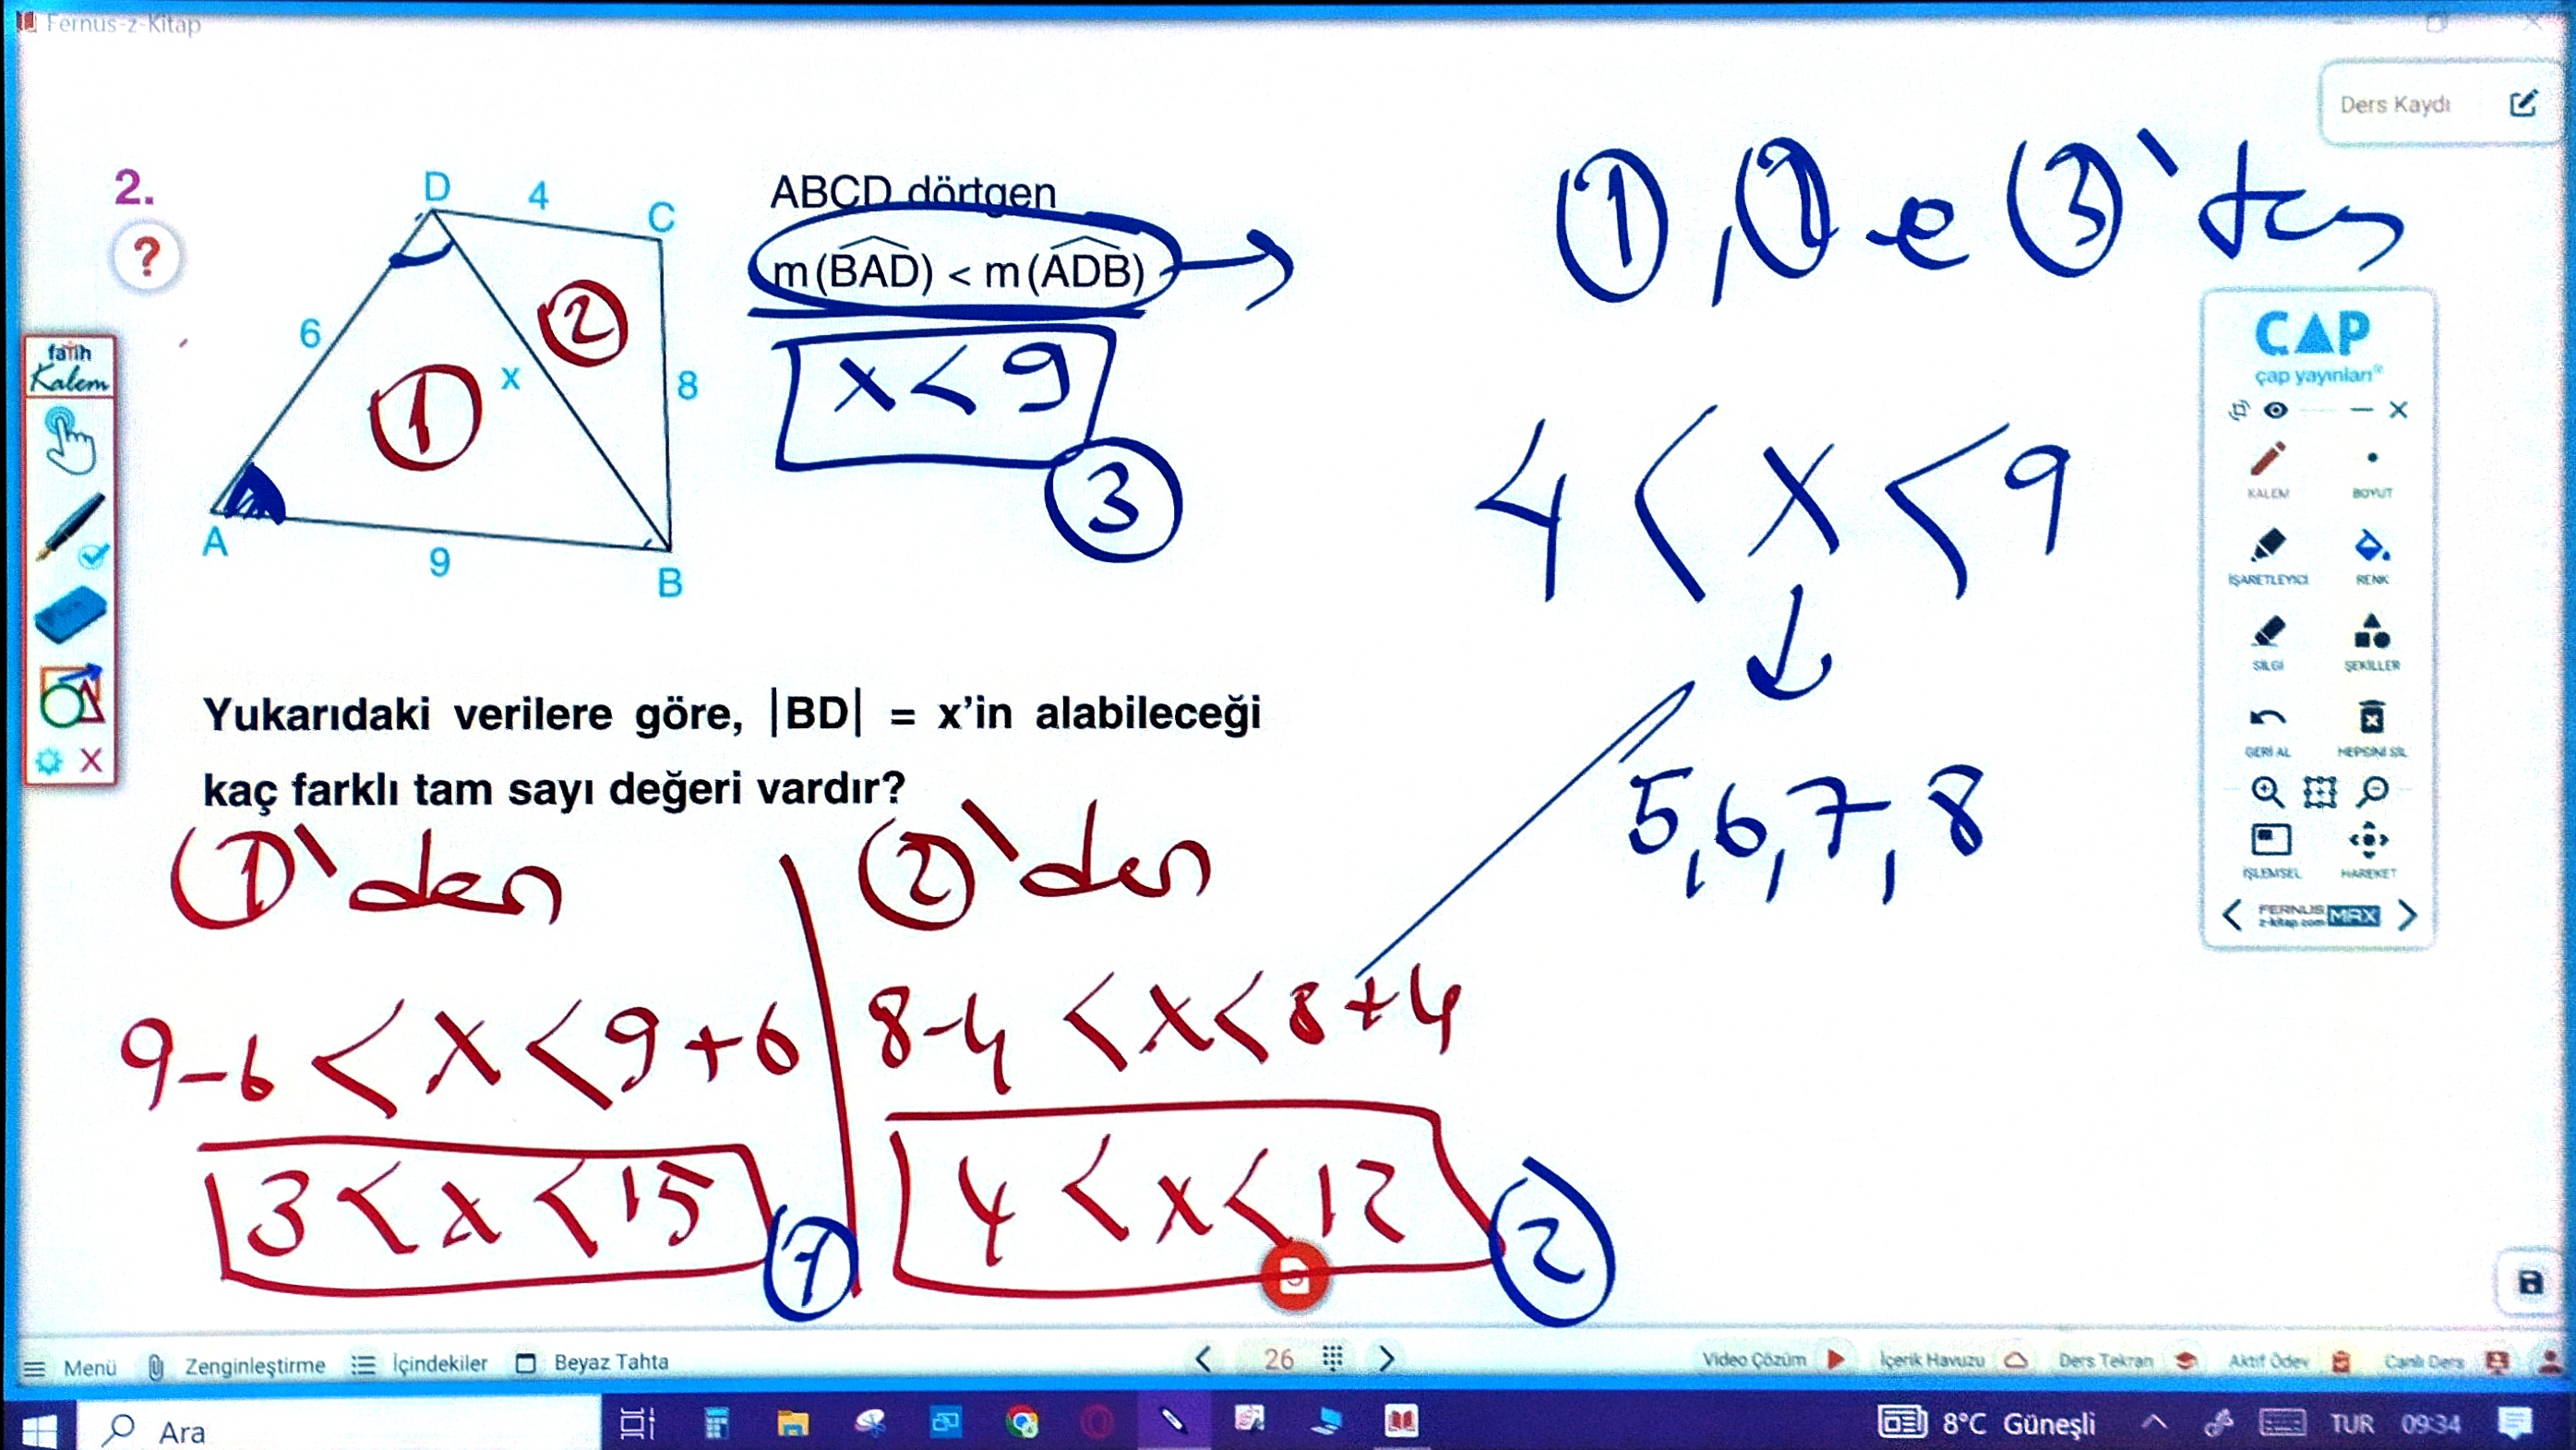 Fernus-z-Kitap
Ders Kaydı
2.
?
D 4 C
6 x 8
A 9 B
1
2
ABCD dörtgen
m(BAD) < m(ADB)
x < 9
3
1, 2 ve 3'ten
4 < x < 9
5, 6, 7, 8
Yukarıdaki verilere göre, |BD| = x'in alabileceği
kaç farklı tam sayı değeri vardır?
1'den
9-6 < x < 9+6
3 < x < 15
1
2'den
8-4 < x < 8+4
4 < x < 12
2
fatih
Kalem
ÇAP
çap yayınları®
KALEM BOYUT
İŞARETLEYİCİ RENK
SİLGİ ŞEKİLLER
GERİ AL HEPSİNİ SİL
İŞLEMSEL HAREKET
FERNUS
z-kitap.com MAX
Menü Zenginleştirme İçindekiler Beyaz Tahta 26 Video Çözüm İçerik Havuzu Ders Tekrarı Aktif Ödev Canlı Ders
Ara 8°C Güneşli TUR 09:34